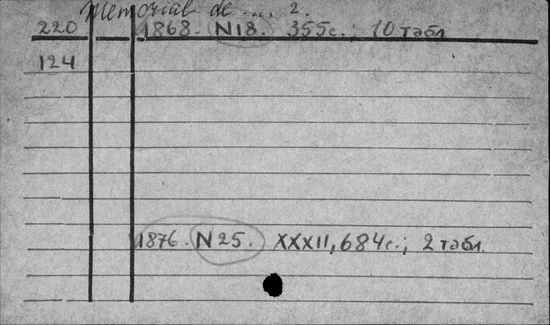 Memorial de ... 2.
220 1868. N18. 355с.; 10 табл.
124
1876. N25. XXXII, 684с.; 2 табл.